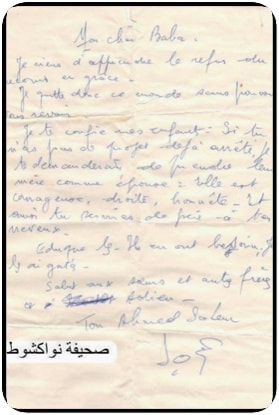 Mon cher Baba.
Je viens d'apprendre le refus du
recours en grâce.
Je quitte donc ce monde sans pouvoir
vous revoir.
Je te confie mes enfants. Si tu
n'as pas de projet déjà arrêté je
te demanderais de prendre leur
mère comme épouse : Elle est
courageuse, droite, honnête. Et
ainsi tu serviras de père à tes
neveux.
Eduque les. Ils en ont besoin, je
les ai gatés.
Salut aux sœurs et autres frères
Adieu
Ton Ahmed Salem
صحيفة نواكشوط